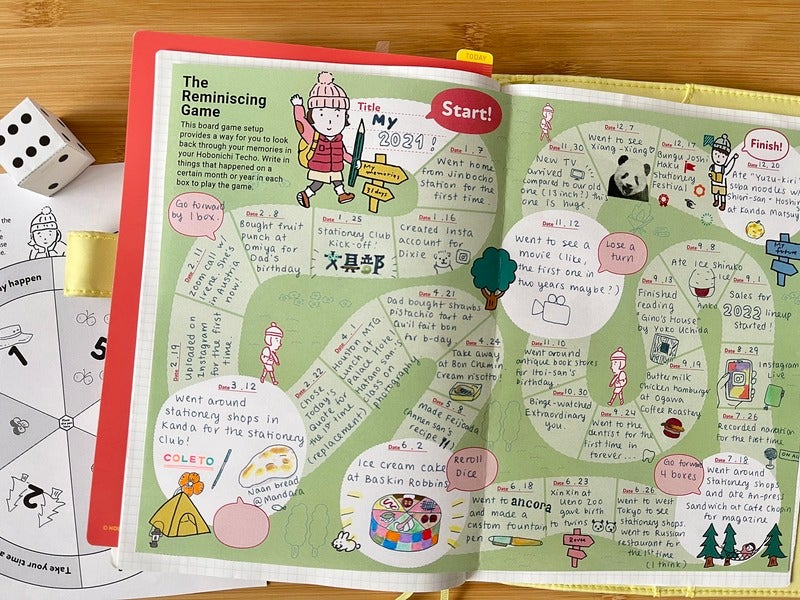 The
Reminiscing
Game
This board game setup
provides a way for you to look
back through your memories in
your Hobonichi Techo. Write in
things that happened on a
certain month or year in each
box to play the game.
TODAY
Title
My
2021!
Start!
My
memories
31 days
Date 1.7
Went home
from Jinbocho
station for the
first time.
Date 1.16
Created Insta
account for
Dixie
Date 1.25
Stationery Club
Kick-off!
文具部
Date 2.8
Bought fruit
punch at
Omiya for
Dad's
birthday
Go forward
by 1 box.
Date 2.11
Zoom call w
Irene. She's
in Austria
now!
Date 2.19
Uploaded on
Instagram
for the first
time
Date 3.12
Went around
stationery shops in
Kanda for the stationery
club!
COLETO
Naan bread
@Mandara
Date 2.22
Chose
today's
Quote for
the 1st time
(replacement)
Date 4.1
Lunch at
Palace Hotel
photography
Date 4.21
Dad bought strawbs
pistachio tart at
Qu'il fait bon
for b-day
Date 4.24
Take away
at Bon Chemin
Cream risotto!
Made Feijoada
(Annen san's
recipe
Date 6.2
Ice cream cake
at Baskin Robbins
Reroll
Dice
Date 6.18
went to ancora
and made a
custom fountain
pen
Date 6.23
xin xin at
Ueno Zoo
gave birth
to twins
Date 6.26
went to west
Tokyo to see
stationery shops.
went to Russian
restaurant for
the 1st time
(I think)
Go forward
4 boxes
Date 7.18
Went around
stationery shops
and ate An-press
Sandwich at Cafe Chopin
for magazine
Date 7.26
Recorded narration
for the first time
ON A
Date 8.29
Instagram
Live
Date 9.1
Sales for
2022 lineup
started!
Date 9.8
Ate ice shiruko
Anko
Date 9.13
Finished
reading
"Gino's House"
by Yoko Uchida
Date 9.19
Buttermilk
chicken hamburger
at Ogawa
Coffee Roastery
Date 9.24
Went to the
dentist for the
first time in
forever...
Date 10.30
Binge-watched
Extraordinary
You.
Date 11.10
Went around
antique book stores
for Itoi-san's
birthday.
Date 11.12
Went to see a
movie (like,
the first one in
two years maybe?)
Lose a
turn
Date 11.30
New TV
arrived
compared to our old
one (13inch?) this
one IS huge.
Date 12.7
Went to see
Xiang-Xiang
Date 12.17
Bungu Joshi
Haku
Stationery
Festival
Finish!
Date 12.20
Ate "Yuzu-kiri"
soba noodles w
Shiori-san + Hoshi
at Kanda Matsuy
My
future
the
y happen
1
5
2
Take your time a